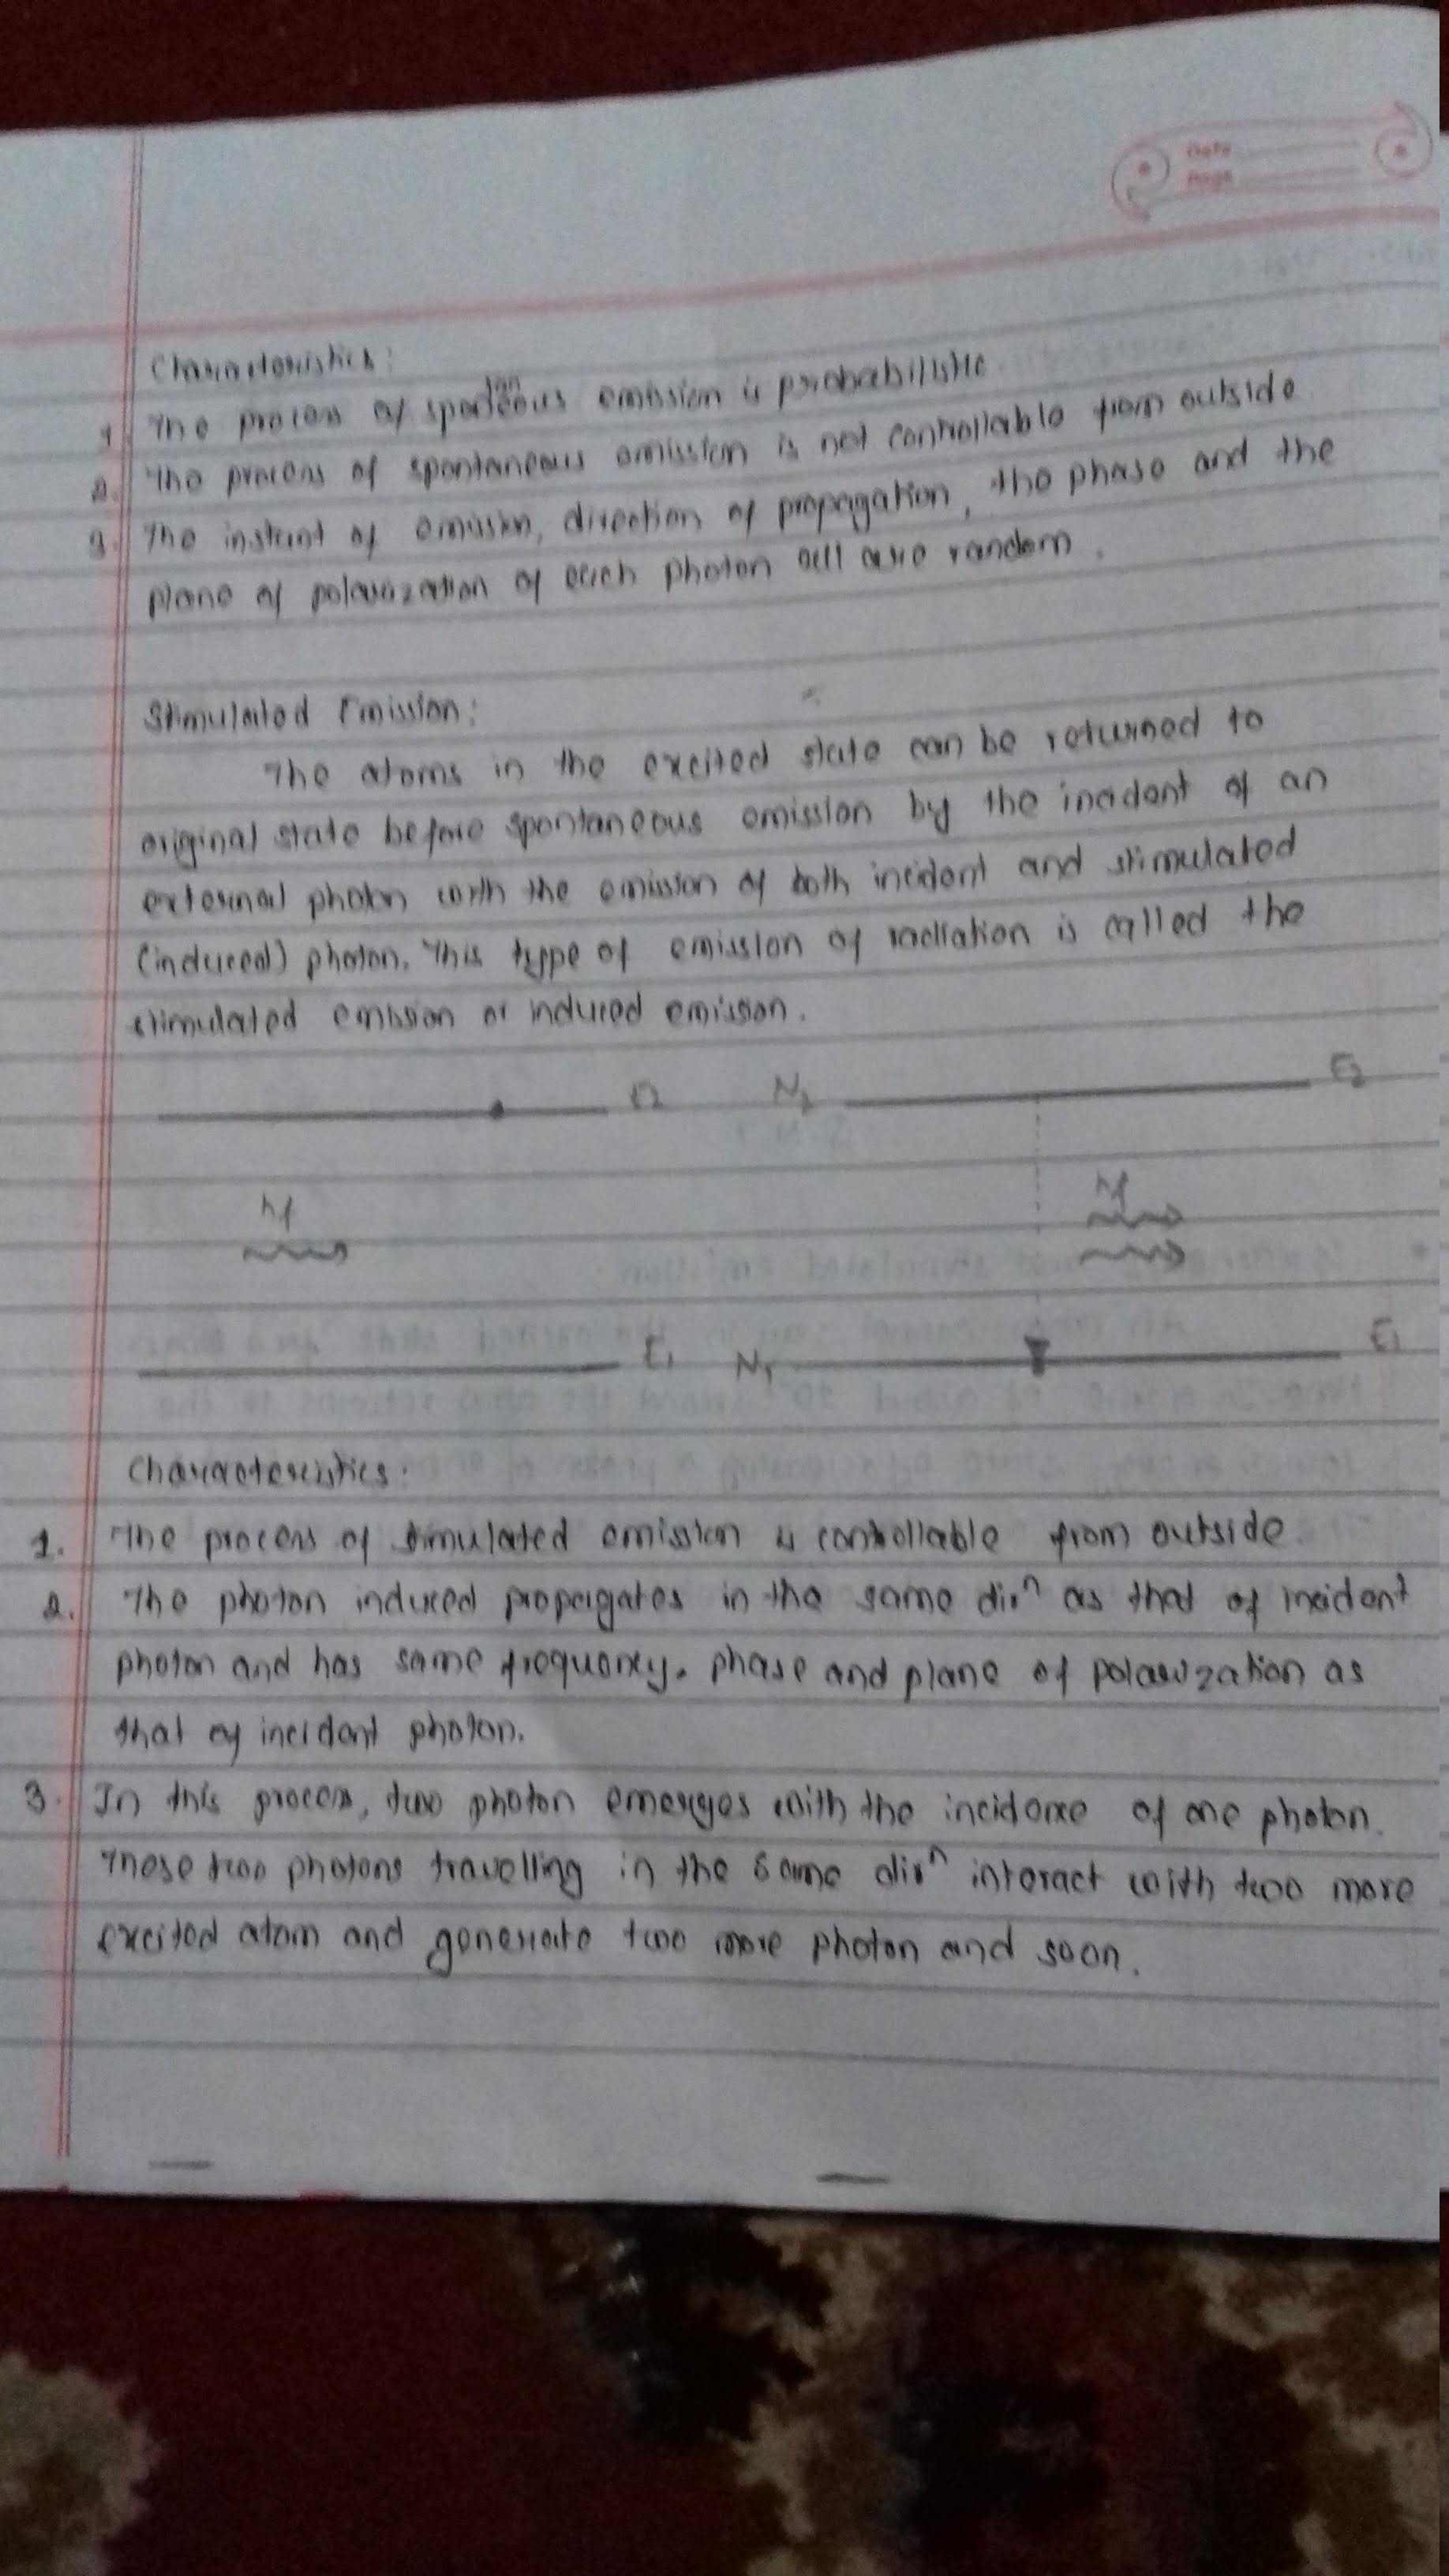 Date
Page
Characteristics:
1. The process of spontaneous emission is probabilistic.
2. The process of spontaneous emission is not controllable from outside
3. The instant of emission, direction of propagation, the phase and the
plane of polarization of each photon all are random.
Stimulated Emission:
The atoms in the excited state can be returned to
original state before spontaneous emission by the incident of an
external photon with the emission of both incident and stimulated
(induced) photon. This type of emission of radiation is called the
stimulated emission or induced emission.
E2 N2 E2
hf hf
E1 N1 E1
Characteristics:
1. The process of stimulated emission is controllable from outside.
2. The photon induced propagates in the same dirⁿ as that of incident
photon and has same frequency, phase and plane of polarization as
that of incident photon.
3. In this process, two photon emerges with the incidence of one photon.
These two photons travelling in the same dirⁿ interact with two more
excited atom and generate two more photon and soon.